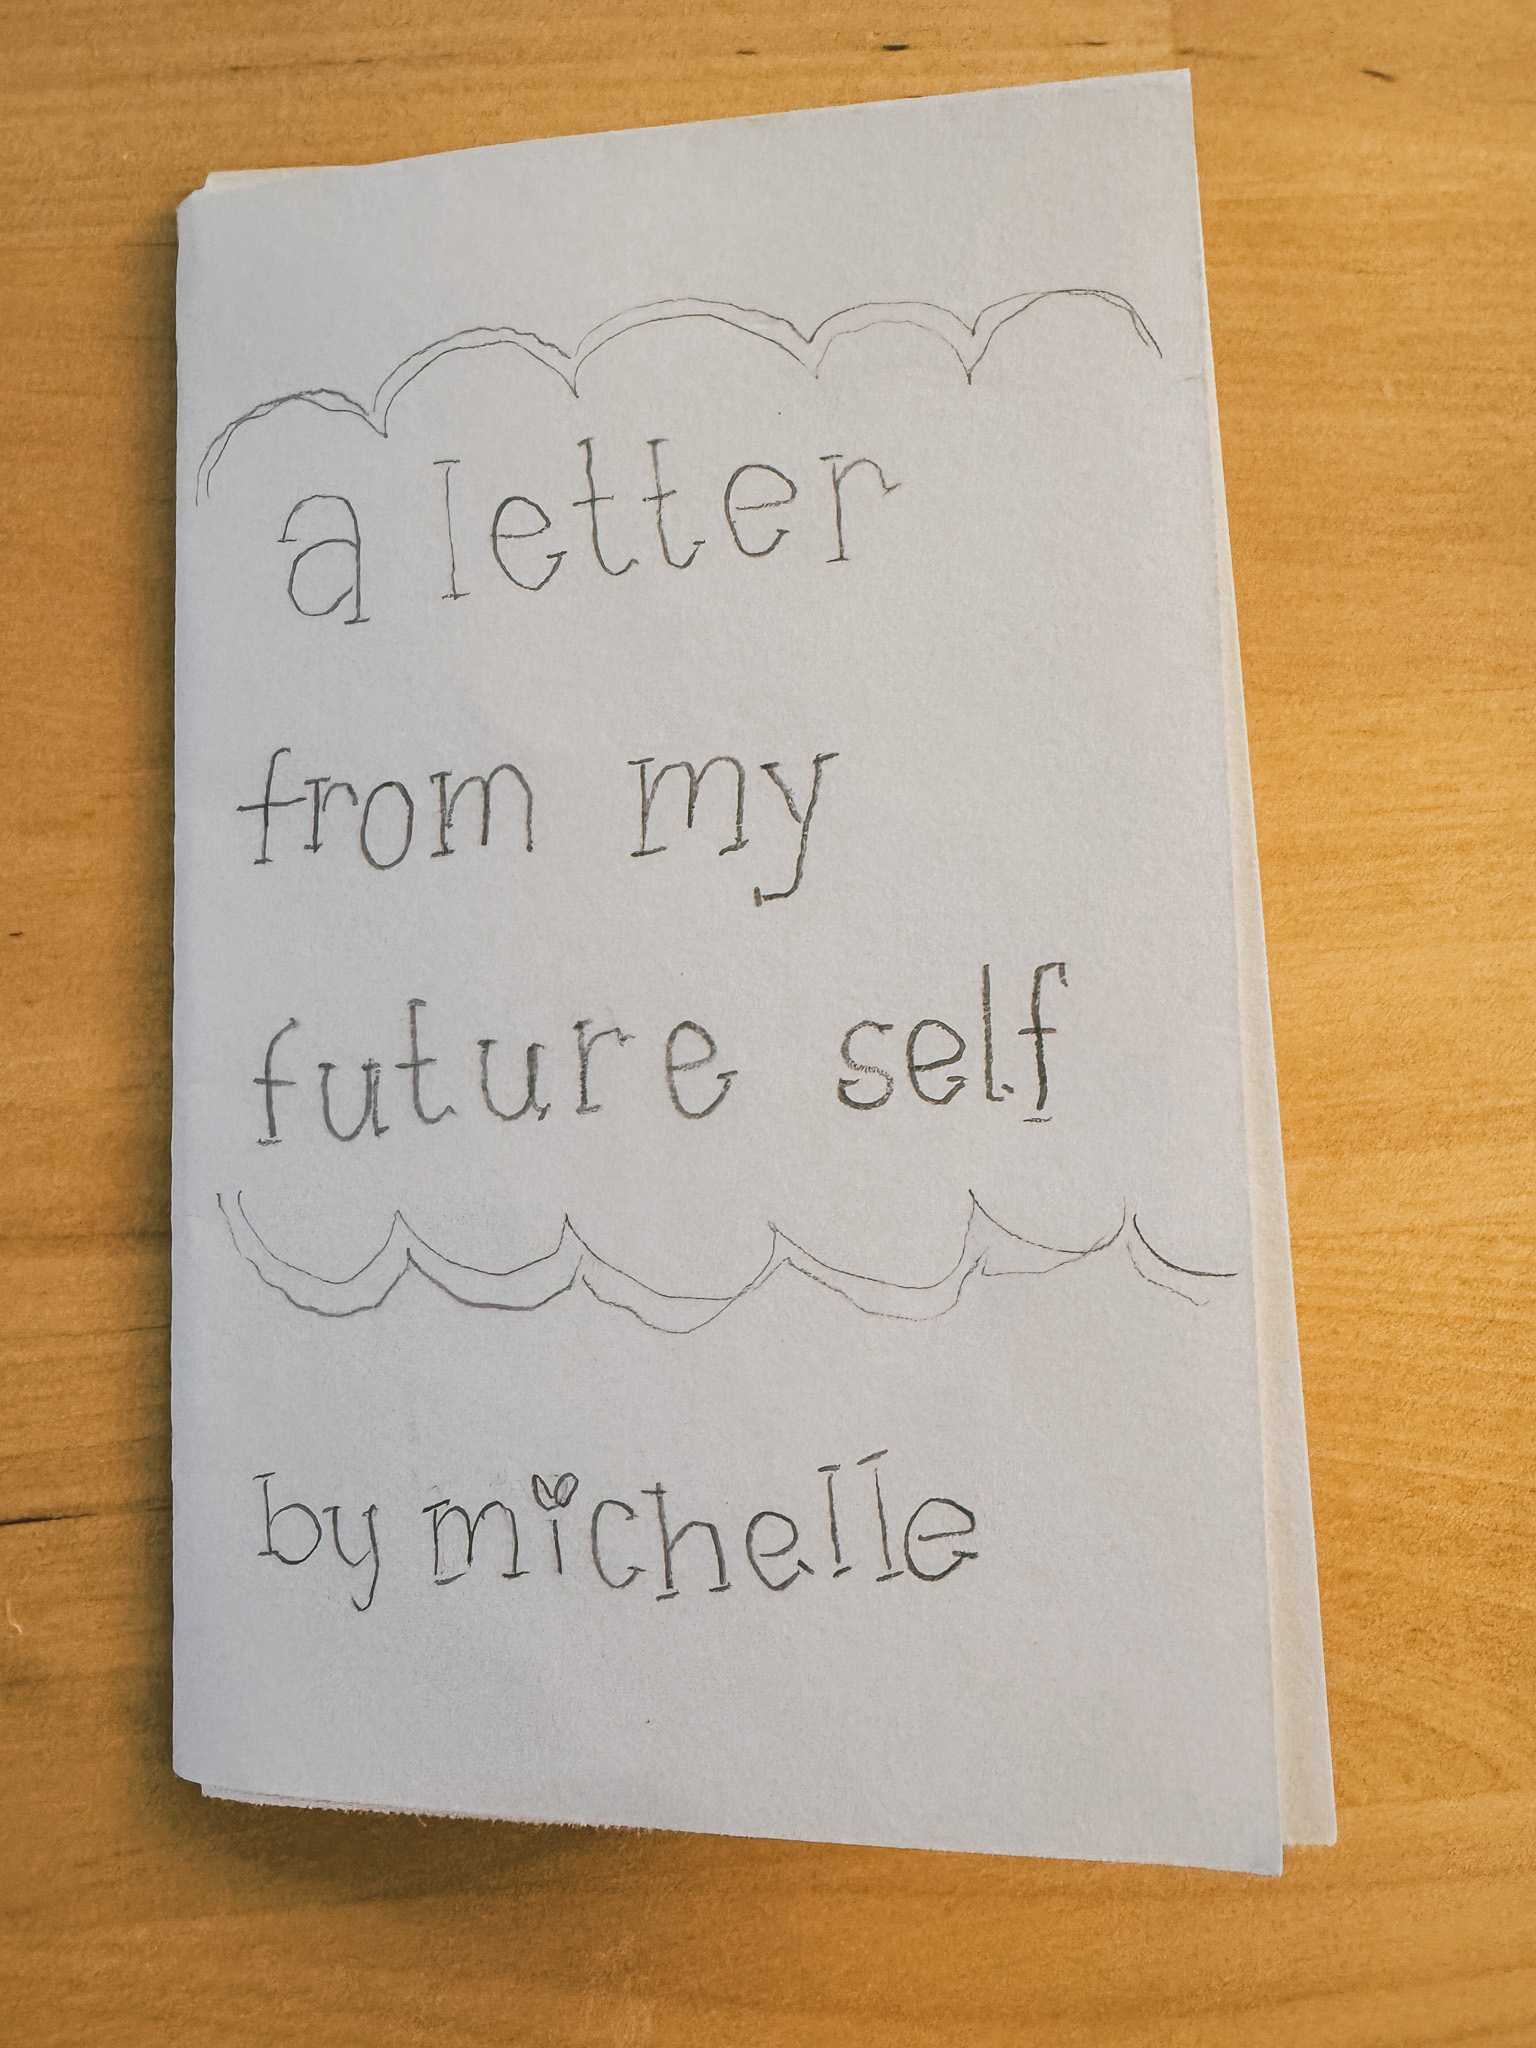 a letter
from my
future self
by michelle